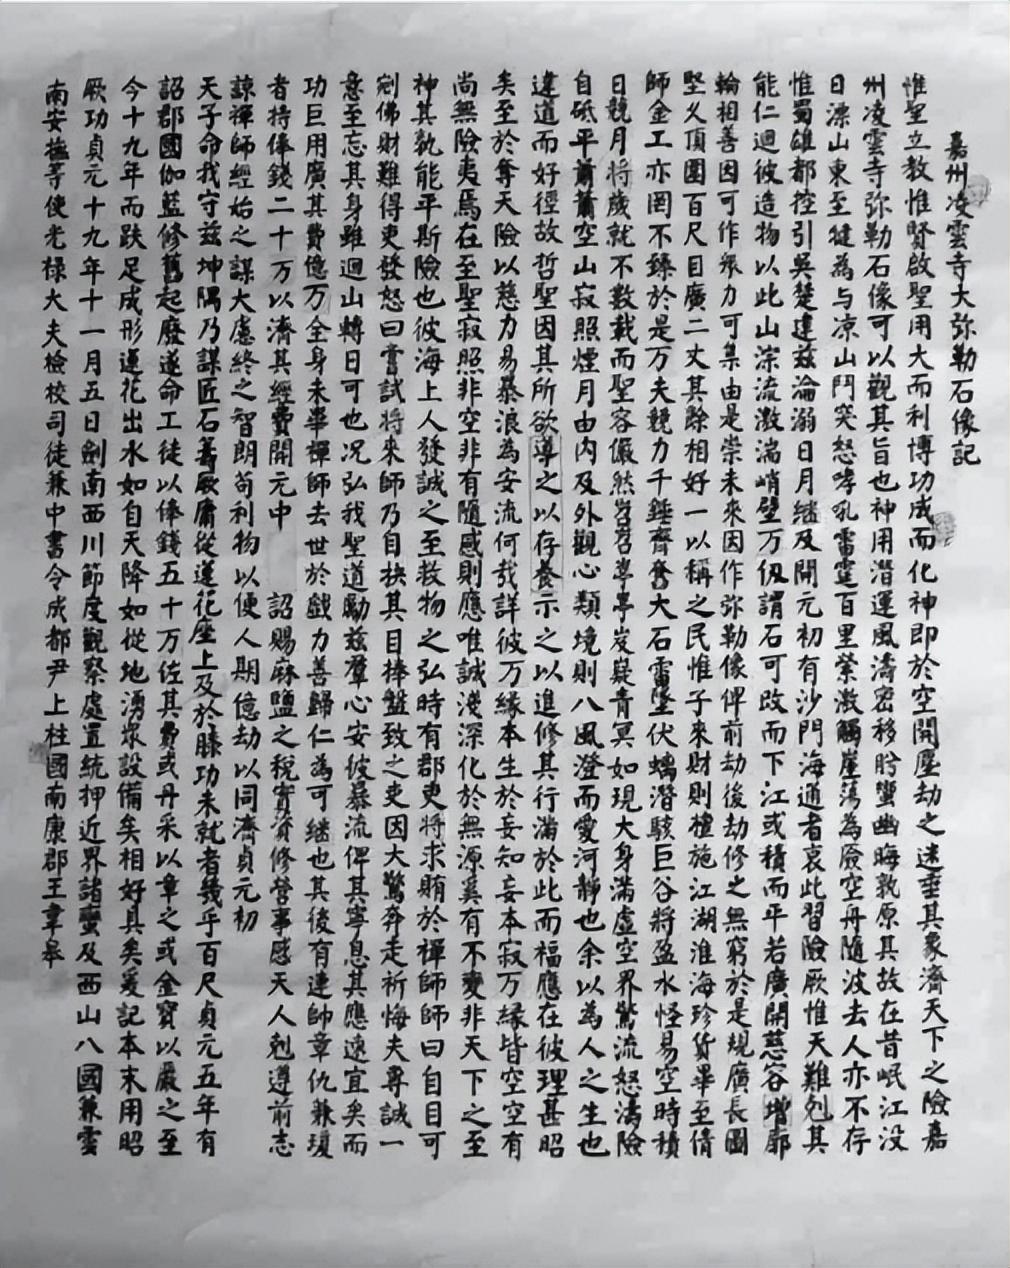 嘉州凌雲寺大弥勒石像記
惟聖立教惟賢啟聖用大而利博功成而化神即於空開塵劫之迷垂其象濟天下之險嘉
州凌雲寺弥勒石像可以觀其旨也神用潛運風濤密移肸蠁幽晦孰原其故在昔岷江没
日漂山東至犍為与凉山鬥突怒哮吼雷霆百里縈激觸崖蕩為廞空舟随波去人亦不存
惟蜀雄都控引吳楚建兹淪溺日月继及開元初有沙門海通者哀此習險厥惟天難剋其
能仁迴彼造物以此山淙流激湍峭壁万仞謂石可改而下江或積而平若廣開慈容增廓
輪相善因可作衆力可集由是崇未來因作弥勒像俾前劫後劫修之無窮於是規廣長圖
堅久頂圍百尺目廣二丈其餘相好一以稱之民惟子來財則檀施江湖淮海珍貨畢至偫
師金工亦罔不臻於是万夫競力千錘齊奮大石雷墜伏螭潛駭巨谷將盈水怪易空時積
日競月將歲就不数載而聖容儼然岧岧崇崇岌嶷青冥如現大身滿虚空界驚流怒濤險
自砥平萧萧空山寂照煙月由内及外觀心類境則八風澄而愛河靜也余以為人之生也
違道而好徑故哲聖因其所欲導之以存養示之以進修其行滿於此而福應在彼理甚昭
矣至於奪天險以慈力易暴浪為安流何哉詳彼万緣本生於妄知妄本寂万缘皆空空有
尚無險夷焉在至聖寂照非空非有隨感則應唯誠淺深化於無源奚有不變非天下之至
神其孰能平斯險也彼海上人發誠之至救物之弘時有郡吏将求賄於禪師師曰自目可
剜佛財難得吏發怒曰嘗試将來師乃自抉其目捧盤致之吏因大驚奔走祈悔夫專誠一
意至忘其身雖迴山轉日可也况弘我聖道勵兹羣心安彼暴流俾其寧息其應速宜矣而
功巨用廣其費億万全身未畢禪師去世於戲力善歸仁為可继也其後有連帥章仇兼瓊
者持俸錢二十万以濟其經費開元中 詔賜麻鹽之税實资修營事感天人剋遵前志
諒禪師經始之謀大慮終之智朗苟利物以便人期億劫以同濟貞元初
天子命我守兹坤隅乃謀匠石筹厥庸從蓮花座上及於膝功未就者幾乎百尺貞元五年有
詔郡國伽藍修舊起廢遂命工徒以俸錢五十万佐其費或丹采以章之或金寶以嚴之至
今十九年而跌足成形蓮花出水如自天降如從地湧衆設備矣相好具矣爰記本末用昭
厥功貞元十九年十一月五日劍南西川節度觀察處置統押近界諸蠻及西山八國兼雲
南安撫等使光禄大夫檢校司徒兼中書令成都尹上柱國南康郡王韋皋